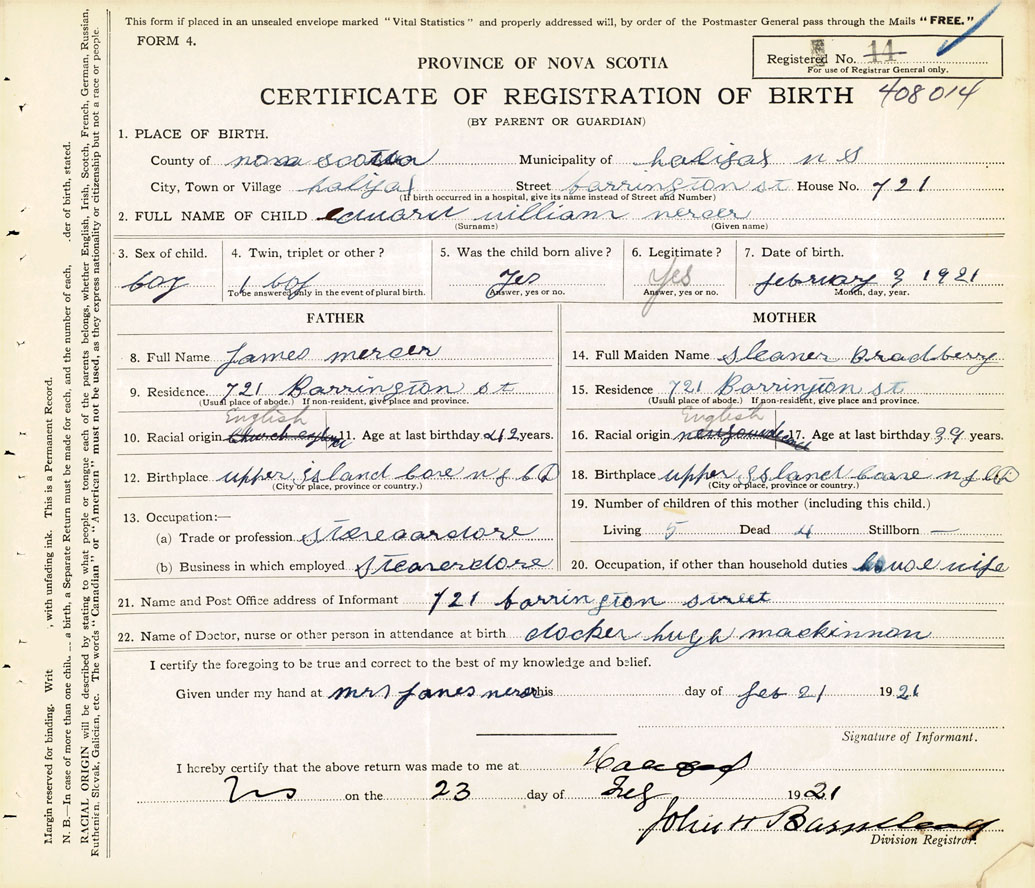 This form if placed in an unsealed envelope marked "Vital Statistics" and properly addressed will, by order of the Postmaster General pass through the Mails "FREE."
FORM 4.
Registered No. 14
For use of Registrar General only.
PROVINCE OF NOVA SCOTIA
CERTIFICATE OF REGISTRATION OF BIRTH 408014
(BY PARENT OR GUARDIAN)
1. PLACE OF BIRTH.
County of nova scotia Municipality of halifax n s
City, Town or Village halifax Street barrington st House No. 721
(If birth occurred in a hospital, give its name instead of Street and Number)
2. FULL NAME OF CHILD eduard william mercer
(Surname) (Given name)
3. Sex of child. 4. Twin, triplet or other? 5. Was the child born alive? 6. Legitimate? 7. Date of birth.
boy 1 boy Yes Yes february 3 1921
To be answered only in the event of plural birth. Answer, yes or no. Answer, yes or no. Month, day, year.
FATHER MOTHER
8. Full Name James mercer 14. Full Maiden Name Bradberry
9. Residence 721 Barrington st 15. Residence 721 Barrington st
(Usual place of abode.) If non-resident, give place and province. (Usual place of abode.) If non-resident, give place and province.
English English
10. Racial origin 11. Age at last birthday 42 years. 16. Racial origin 17. Age at last birthday 39 years.
12. Birthplace upper island 18. Birthplace upper island
(City or place, province or country.) (City or place, province or country.)
13. Occupation:— 19. Number of children of this mother (including this child.)
(a) Trade or profession Living 5 Dead 4 Stillborn —
(b) Business in which employed 20. Occupation, if other than household duties house wife
21. Name and Post Office address of Informant 721 barrington street
22. Name of Doctor, nurse or other person in attendance at birth hugh mackinnon
I certify the foregoing to be true and correct to the best of my knowledge and belief.
Given under my hand at mrs James mercer this day of feb 21 1921
Signature of Informant.
I hereby certify that the above return was made to me at
NS on the 23 day of Feb 1921
John H Barnstead
Division Registrar.
Margin reserved for binding. Writ , with unfading ink. This is a Permanent Record.
N. B.—In case of more than one chil a birth, a Separate Return must be made for each, and the number of each, der of birth, stated.
RACIAL ORIGIN will be described by stating to what people or tongue each of the parents belongs, whether English, Irish, Scotch, French, German, Russian,
Ruthenian, Slovak, Galician, etc. The words "Canadian" or "American" must not be used, as they express nationality or citizenship but not a race or people.